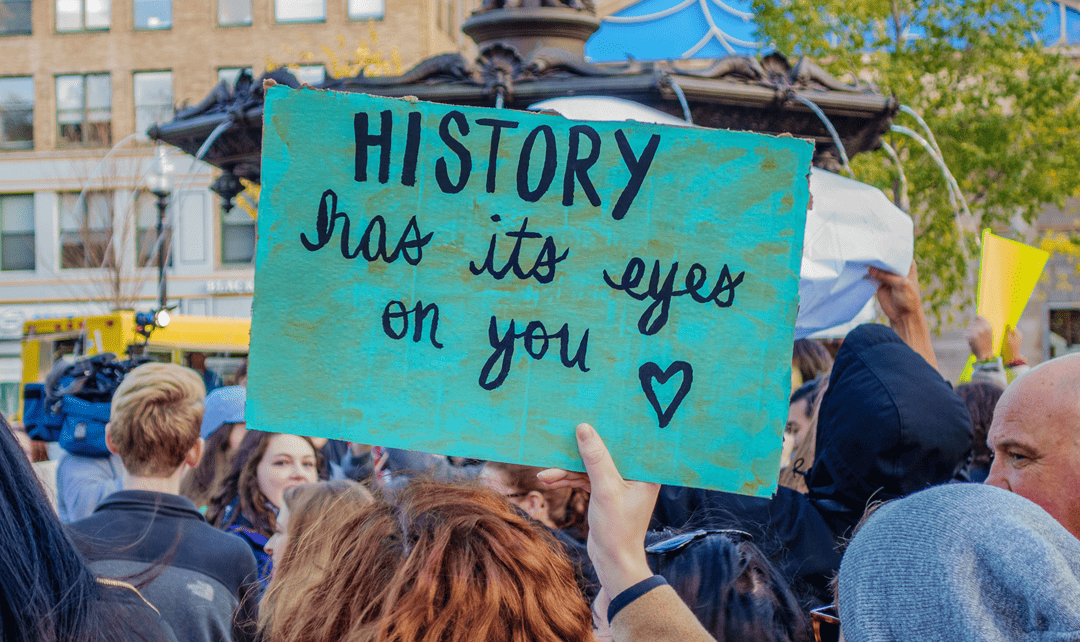 HISTORY
has its eyes
on you
BLACK